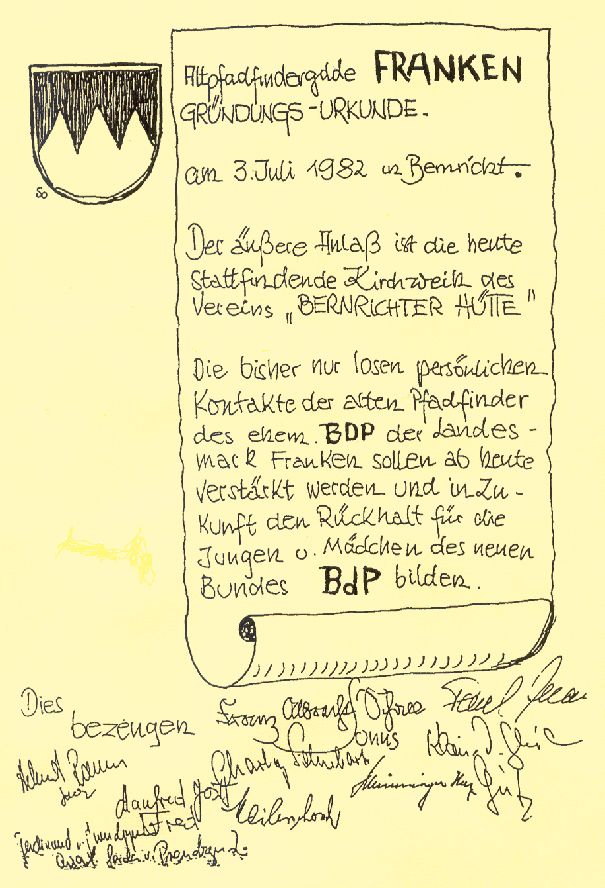 Altpfadfindergilde FRANKEN
GRÜNDUNGS-URKUNDE.
am 3. Juli 1982 in Bernricht.
Der äußere Anlaß ist die heute
stattfindende Kirchweih des
Vereins „BERNRICHTER HÜTTE"
Die bisher nur losen persönlichen
Kontakte der alten Pfadfinder
des ehem. BDP der Landes-
mark Franken sollen ab heute
verstärkt werden und in Zu-
kunft den Rückhalt für die
Jungen u. Mädchen des neuen
Bundes BdP bilden.
Dies
bezeugen
Franz
Manfred Jost